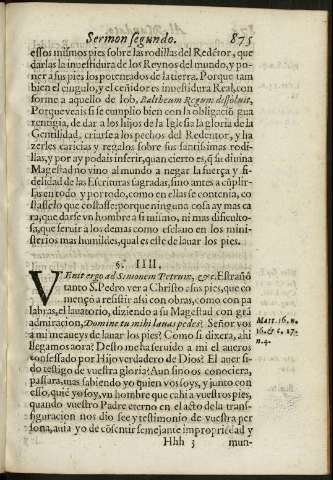 Sermon segundo. 875
essos mismos pies sobre las rodillas del Redẽtor, que
darlas la inuestidura de los Reynos del mundo, y po-
ner a sus pies los potentados de la tierra. Porque tam
bien el cingulo, y el ceñidor es inuestidura Real, con
forme a aquello de Iob, Baltheum Regum dissoluit,
Porque veais si se cumplio bien con la obligaciõ gua
rentigia, de dar a los hijos de la Iglesia la gloria de la
Gentilidad, criarse a los pechos del Redentor, y ha
zerles caricias y regalos sobre sus santissimas rodi-
llas, y por ay podais inferir, quan cierto es, q̃ su diuina
Magestad no vino al mundo a negar la fuerça y fi-
delidad de las Escrituras sagradas, sino antes a cũplir-
las en todo y por todo, como en ellas se contenia, co
stasselo que costasse: porque ninguna cosa ay mas ca
ra, que darse vn hombre a si mismo, ni mas dificulto-
sa, que seruir a los demas como esclauo en los mini-
sterios mas humildes, qual es este de lauar los pies.
§. IIII.
VEnit ergo ad Simonem Petrum, &c. Estrañò
tanto S. Pedro ver a Christo a sus pies, que co
mençò a resistir assi con obras, como con pa
labras, el lauatorio, diziendo a su Magestad con grã
admiracion, Domine tu mihi lauas pedes? Señor vos
a mi me aueys de lauar los pies? Como si dixera, ahi
llegamos aora? Desso me ha seruido a mi el aueros
confessado por Hijo verdadero de Dios? El auer si-
do testigo de vuestra gloria? Aun si no os conociera,
passara, mas sabiendo yo quien vos soys, y junto con
esso, quiẽ yo soy, vn hombre que cahi a vuestros pies,
quando vuestro Padre eterno en el acto de la trans-
figuracion nos dio fee y testimonio de vuestra per
sona, auia yo de cõsentir semejante impropriedad y
Matt. 16. n.
16. & c. 17.
n. 4.
Hhh 3 mun-